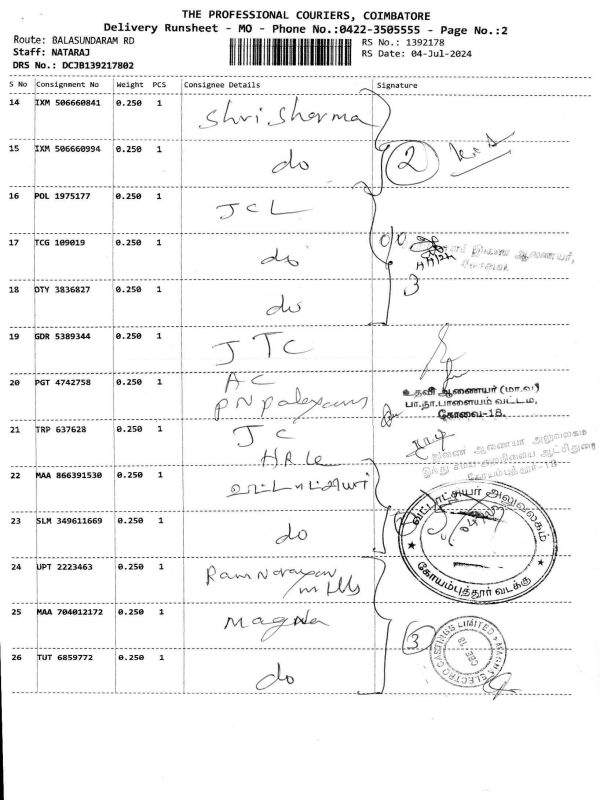 THE PROFESSIONAL COURIERS, COIMBATORE
Delivery Runsheet - MO - Phone No.:0422-3505555 - Page No.:2
Route: BALASUNDARAM RD
RS No.: 1392178
Staff: NATARAJ
RS Date: 04-Jul-2024
DRS No.: DCJB139217802
S No Consignment No Weight PCS Consignee Details Signature
14 IXM 506660841 0.250 1 Shri Sharma
15 IXM 506660994 0.250 1 do 2
16 POL 1975177 0.250 1 JCL
17 TCG 109019 0.250 1 do
இணை ஆணையர்,
கோவை
18 DTY 3836827 0.250 1 do 3
19 GDR 5389344 0.250 1 JTC
20 PGT 4742758 0.250 1 AC
PN palayam
உதவி ஆணையர் (மா.வ)
பா.நா.பாளையம் வட்டம்,
கோவை-18.
21 TRP 637628 0.250 1 JC
HRCE
இணை ஆணையர் அலுவலகம்
கோயம்புத்தூர்-18
22 MAA 866391530 0.250 1
வட்டாட்சியர் அலுவலகம்
23 SLM 349611669 0.250 1 do
கோயம்புத்தூர் வடக்கு
24 UPT 2223463 0.250 1 Ramnarayan
mills
25 MAA 704012172 0.250 1 Magna 3
MAGNA ELECTRO CASTINGS LIMITED
CBE 18
26 TUT 6859772 0.250 1 do